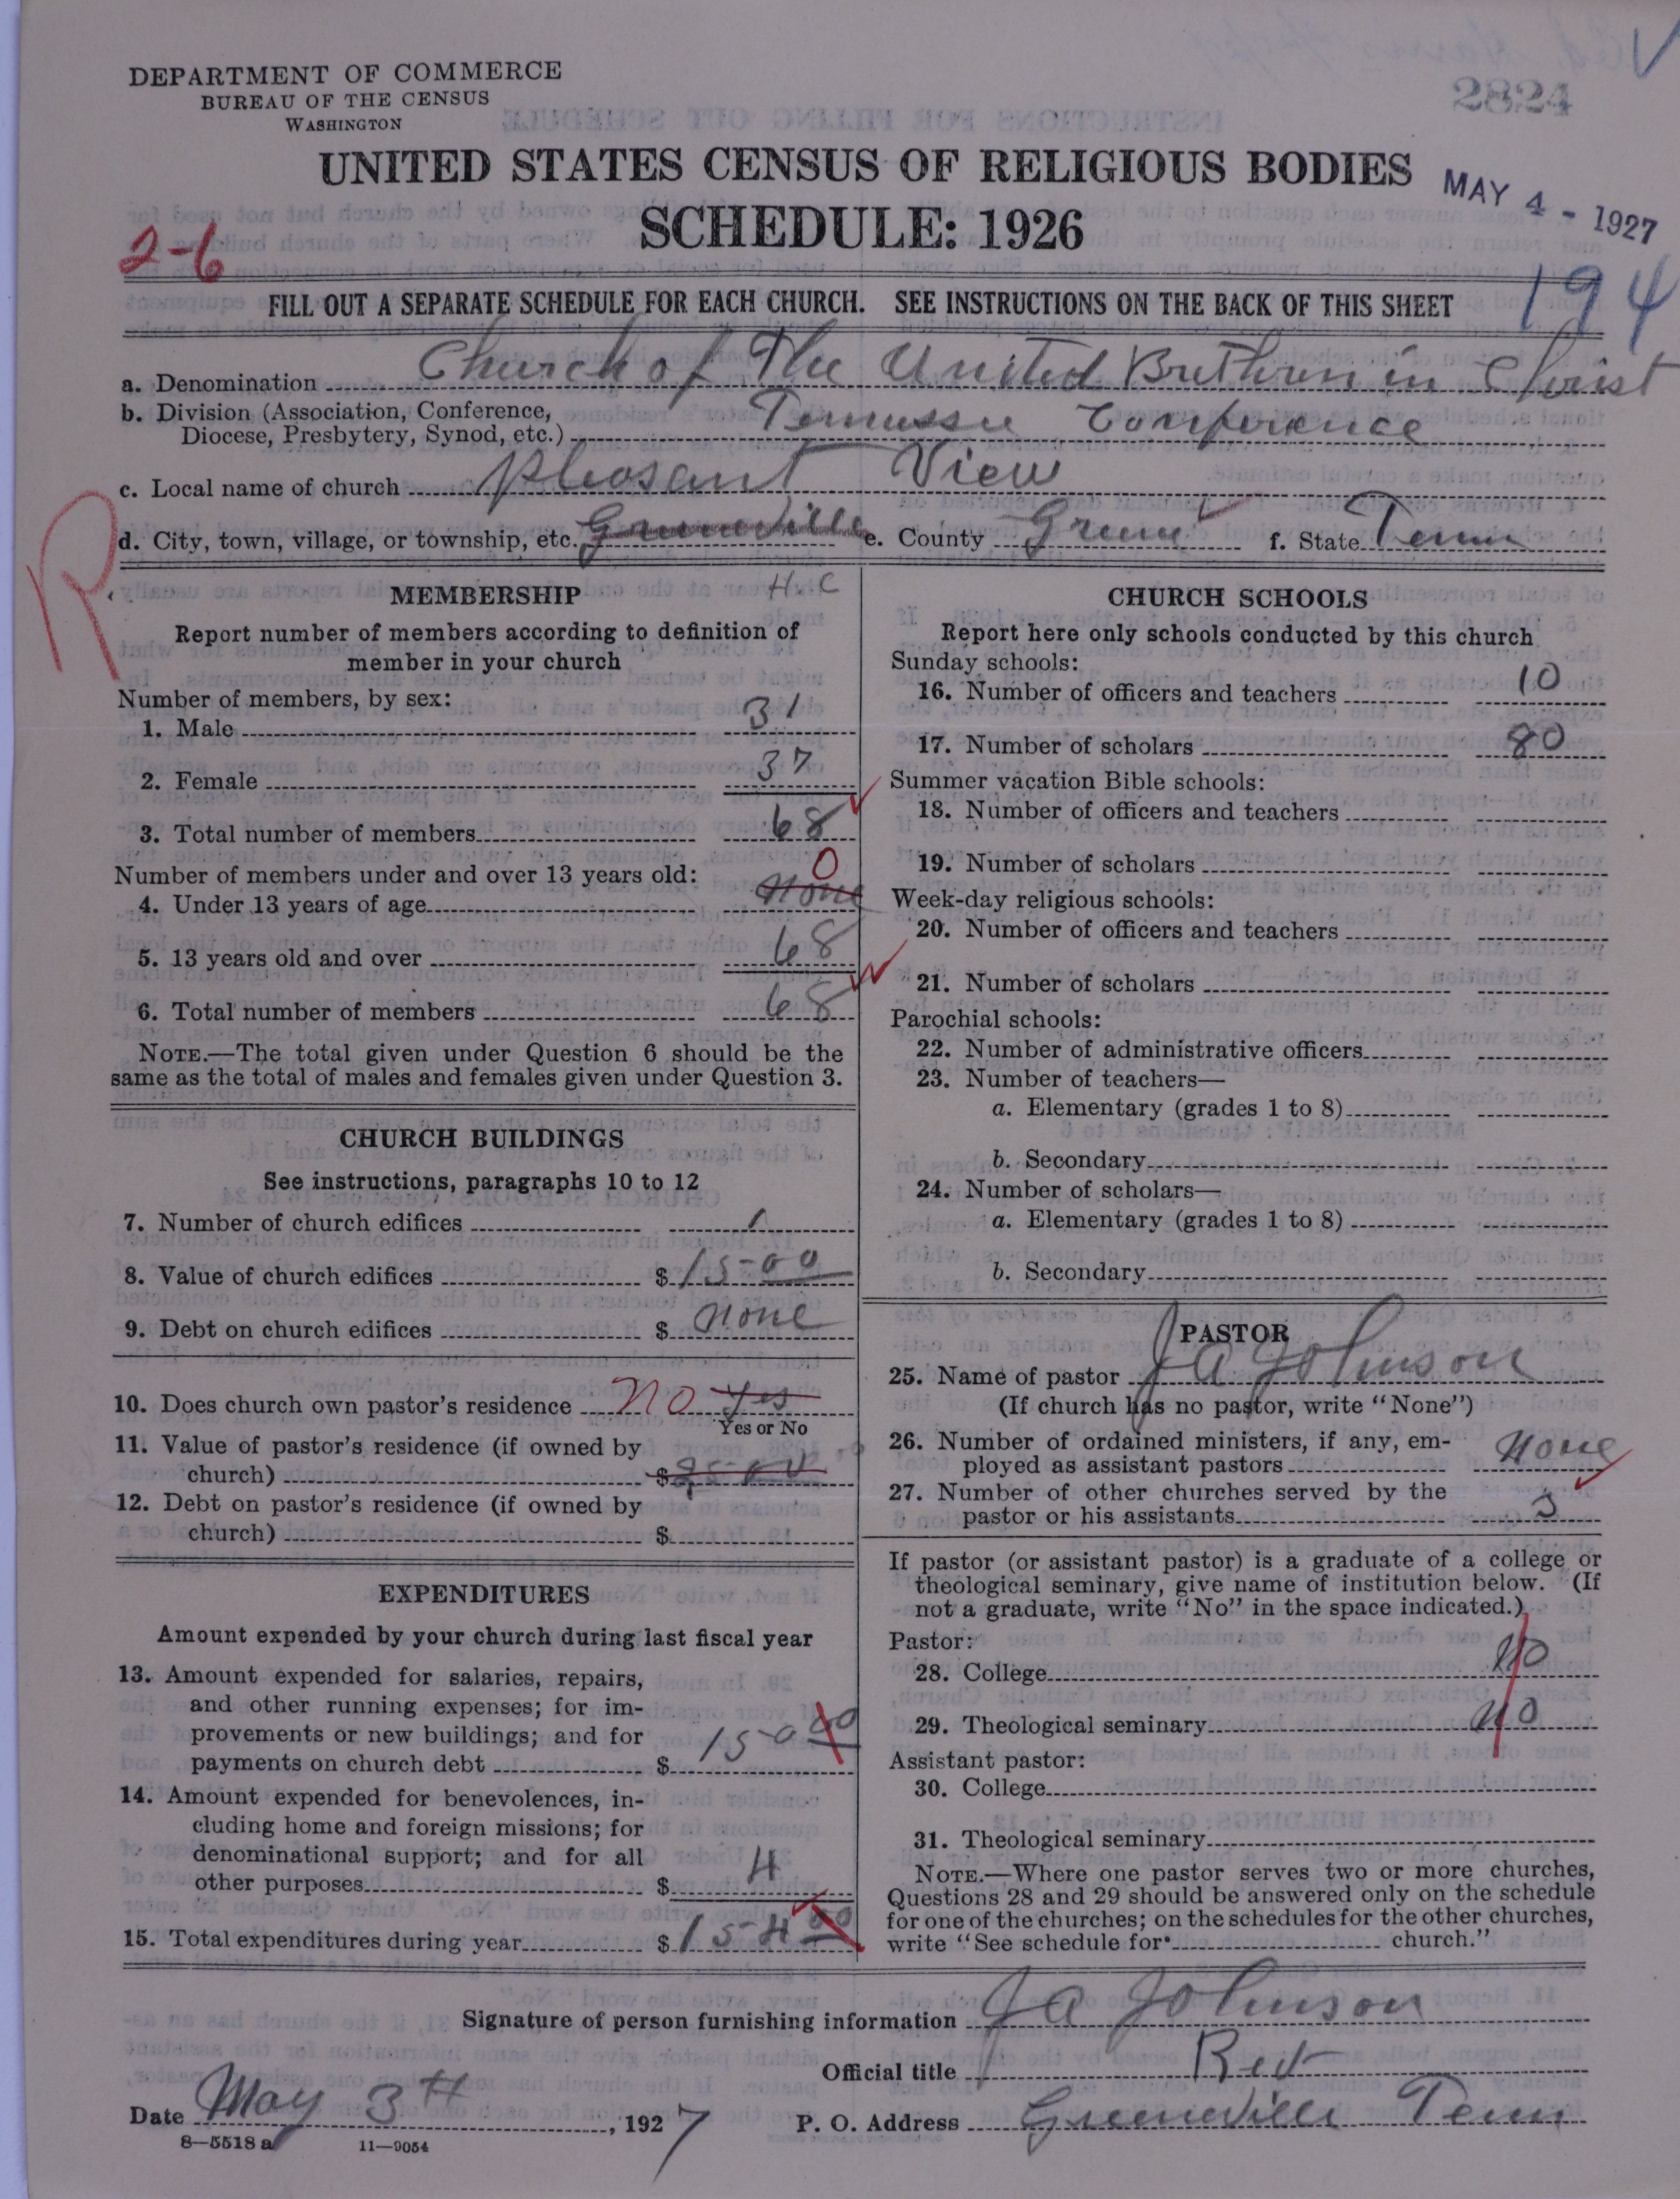 DEPARTMENT OF COMMERCE
BUREAU OF THE CENSUS
WASHINGTON
2824
UNITED STATES CENSUS OF RELIGIOUS BODIES
SCHEDULE: 1926
MAY 4 - 1927
2-6
194
FILL OUT A SEPARATE SCHEDULE FOR EACH CHURCH. SEE INSTRUCTIONS ON THE BACK OF THIS SHEET
a. Denomination Church of The United Brethren in Christ
b. Division (Association, Conference,
Diocese, Presbytery, Synod, etc.) Tennessee Conference
c. Local name of church Pleasant View
R
d. City, town, village, or township, etc. Greeneville e. County Greene f. State Tenn
MEMBERSHIP H.C
Report number of members according to definition of
member in your church
Number of members, by sex:
1. Male 31
2. Female 37
3. Total number of members 68
Number of members under and over 13 years old: 0
4. Under 13 years of age none
5. 13 years old and over 68
6. Total number of members 68
NOTE.—The total given under Question 6 should be the
same as the total of males and females given under Question 3.
CHURCH BUILDINGS
See instructions, paragraphs 10 to 12
7. Number of church edifices 1
8. Value of church edifices $ 1500
9. Debt on church edifices $ none
10. Does church own pastor's residence no yes
Yes or No
11. Value of pastor's residence (if owned by
church) $
12. Debt on pastor's residence (if owned by
church) $
EXPENDITURES
Amount expended by your church during last fiscal year
13. Amount expended for salaries, repairs,
and other running expenses; for im-
provements or new buildings; and for
payments on church debt $ 150 00
14. Amount expended for benevolences, in-
cluding home and foreign missions; for
denominational support; and for all
other purposes $ 4
15. Total expenditures during year $ 154 00
CHURCH SCHOOLS
Report here only schools conducted by this church
Sunday schools:
16. Number of officers and teachers 10
17. Number of scholars 80
Summer vacation Bible schools:
18. Number of officers and teachers
19. Number of scholars
Week-day religious schools:
20. Number of officers and teachers
21. Number of scholars
Parochial schools:
22. Number of administrative officers
23. Number of teachers—
a. Elementary (grades 1 to 8)
b. Secondary
24. Number of scholars—
a. Elementary (grades 1 to 8)
b. Secondary
PASTOR
25. Name of pastor J A Johnson
(If church has no pastor, write "None")
26. Number of ordained ministers, if any, em-
ployed as assistant pastors None
27. Number of other churches served by the
pastor or his assistants 3
If pastor (or assistant pastor) is a graduate of a college or
theological seminary, give name of institution below. (If
not a graduate, write "No" in the space indicated.)
Pastor:
28. College No
29. Theological seminary No
Assistant pastor:
30. College
31. Theological seminary
NOTE.—Where one pastor serves two or more churches,
Questions 28 and 29 should be answered only on the schedule
for one of the churches; on the schedules for the other churches,
write "See schedule for church."
Signature of person furnishing information J A Johnson
Official title Rev
Date May 3th, 1927 P. O. Address Greeneville Tenn
8—5518 a 11—9054